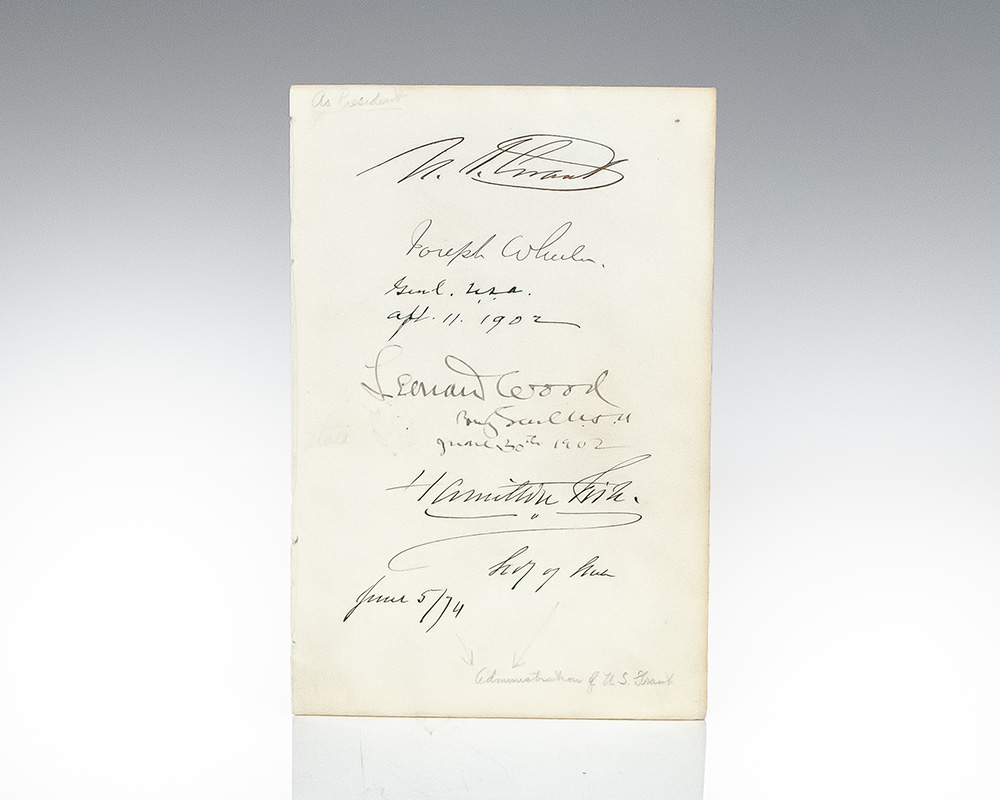 As President
U. S. Grant
Joseph Wheeler.
Genl. U.S.A.
Apl. 11. 1902
Leonard Wood
Brig Genl U.S.A
June 30th 1902
Hamilton Fish.
Secy of State
June 5/74
Administration of U S. Grant